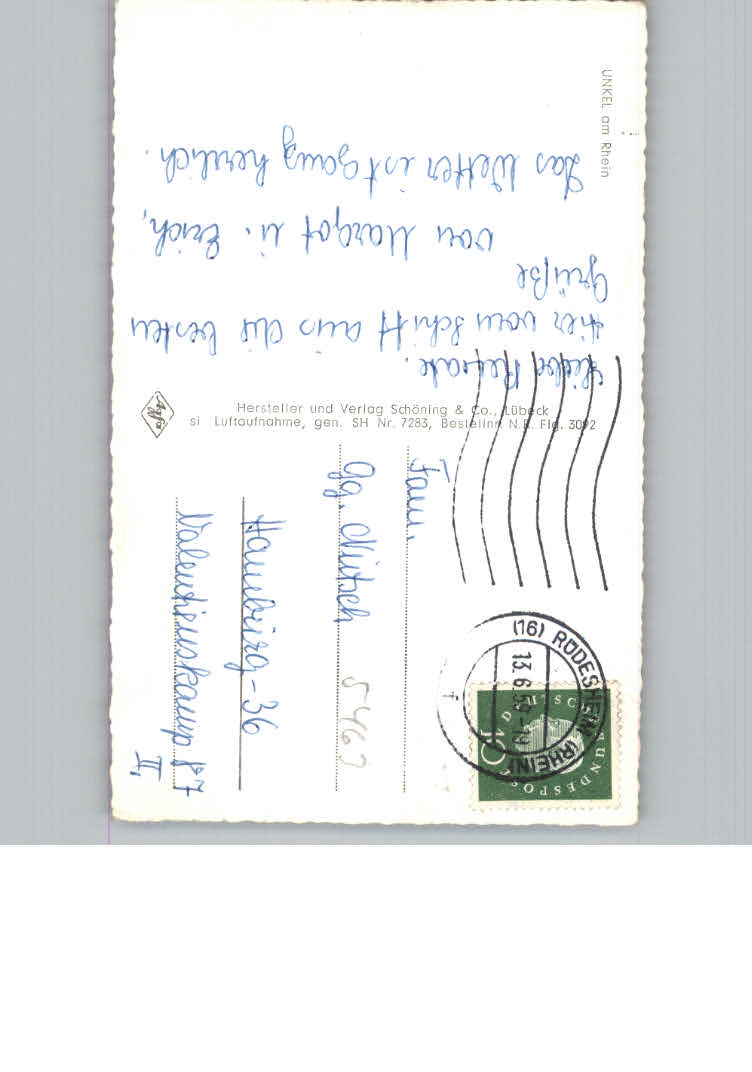 UNKEL am Rhein
Liebe Renate.
Hier vom Schiff aus die besten
Grüße
von Margot u. Erich,
Das Wetter ist ganz herrlich.
Agfa
Hersteller und Verlag Schöning & Co., Lübeck
si Luftaufnahme, gen. SH Nr. 7283, Bestellnr. N.R. Flg. 3092
Fam.
Gg. Nitsch
Hamburg-36
Valentinskamp 87
II,
5463
(16) RÜDESHEIM (RHEIN)
13.6.59
f
DEUTSCHE BUNDESPOST
10